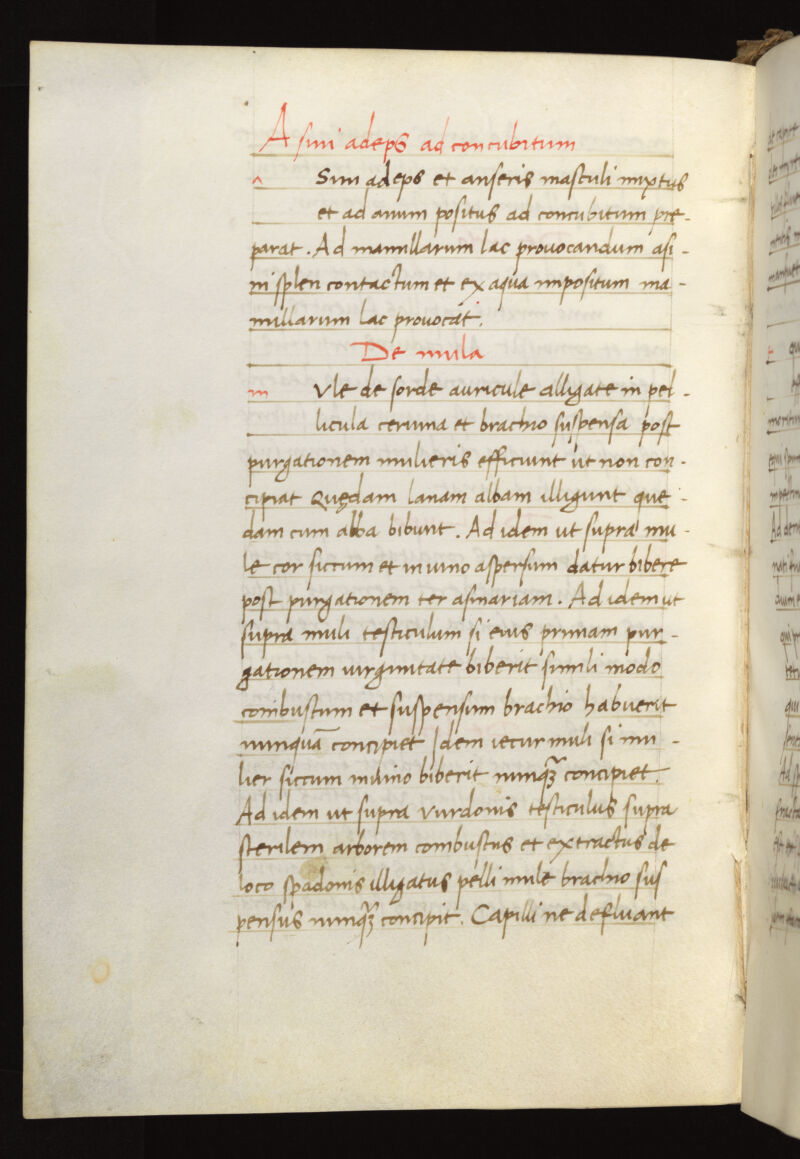 Asini adeps ad concubitum
a Sini adeps et anseris masculi mixtus
et ad anum positus ad concubitum pre-
parat. Ad mamillarum lac prouocandum asi-
ni splen contactum et ex aqua impositum ma-
millarum lac prouocat.
De mula
m Vle de sorde auricule alligate in pel-
licula ceruina et brachio suspensa post
purgationem mulieris efficiunt ut non con-
cipiat Quędam lanam albam illigunt que-
dam cum alba bibunt. Ad idem ut supra mu-
le cor siccum et in uino aspersum datur bibere
post purgationem ter asinariam. Ad idem ut
supra muli testiculum si eius primam pur-
gationem uirginitate biberit simili modo
combustum et suspensum brachio habuerit
nunquā concipiet Idem iecur muli si mu-
lier siccum in uino biberit nunqꝫ concipiet.
Ad idem ut supra vurdonis testiculus supra
sterilem arborem combustus et extractus de
loco spadonis illigatus pelli mule brachio sus
pensus nunqꝫ concipit. Capilli ne defluant